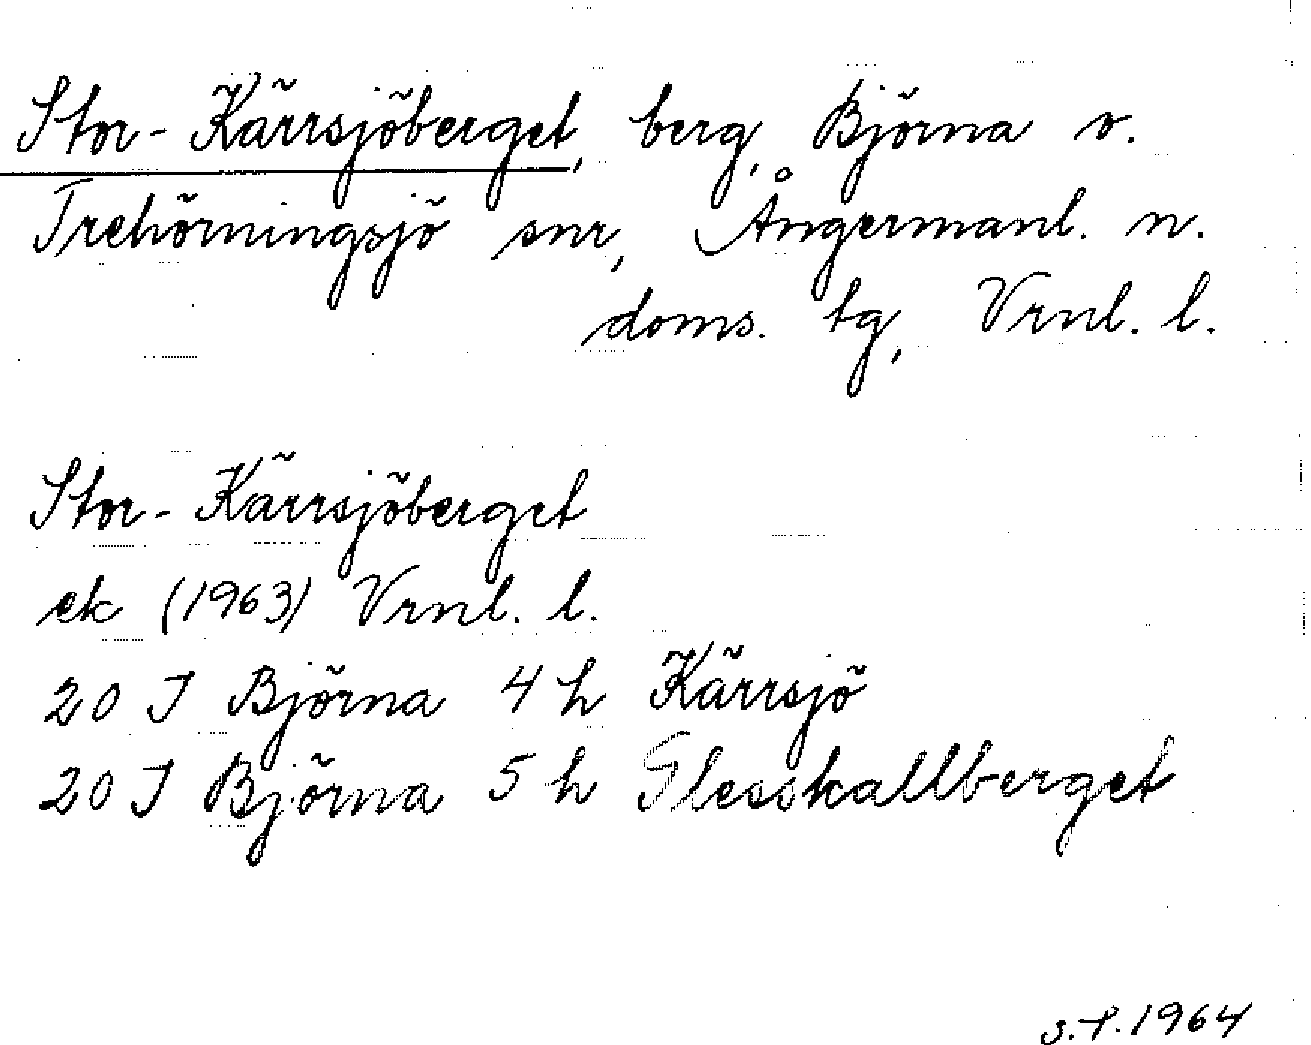 Stor-Kärrsjöberget, berg, Björna o.
Trehörningsjö snr, Ångermanl. n.
doms. tg, Vrnl. l.
Stor-Kärrsjöberget
ek (1963) Vrnl. l.
20 J Björna 4 h Kärrsjö
20 J Björna 5 h Glesskallberget
S.P. 1964